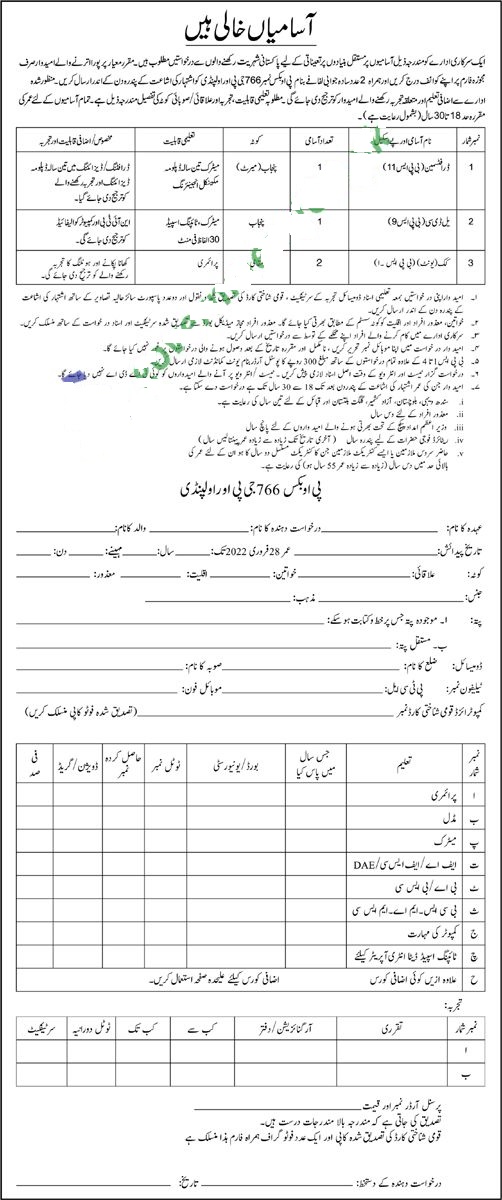 آسامیاں خالی ہیں
ایک سرکاری ادارے کو مندرجہ ذیل آسامیوں پر مستقل بنیادوں پر تعیناتی کے لیے پاکستانی شہریت رکھنے والوں سے درخواستیں مطلوب ہیں۔ مقررہ معیار پر پورا اترنے والے امیدوار صرف
مجوزہ فارم پر اپنے کوائف درج کریں اور ہمراہ 2 عدد سادہ جوابی لفافے بنام پی او بکس نمبر 766 جی پی او راولپنڈی کو اشتہار کی اشاعت کے پندرہ دن کے اندر ارسال کریں۔ منظور شدہ
ادارے سے اضافی تعلیم اور متعلقہ تجربہ رکھنے والے امیدوار کو ترجیح دی جائے گی۔ مطلوبہ تعلیمی قابلیت، تجربہ اور علاقائی/صوبائی کوٹہ کی تفصیل مندرجہ ذیل ہے۔ تمام آسامیوں کے لئے عمر کی
مقررہ حد 18 تا 30 سال (بشمول رعایت) ہے۔
نمبر شمار نام آسامی اور پے تعداد آسامی کوٹہ تعلیمی قابلیت مخصوص/اضافی قابلیت اور تجربہ
1 ڈرافٹسمین (بی پی ایس 11) 1 پنجاب (میرٹ) میٹرک تین سالہ ڈپلومہ مکینیکل انجینئرنگ ڈرافٹنگ/ڈیزائننگ میں تین سالہ ڈپلومہ ڈیزائننگ اور تجربہ رکھنے والے کو ترجیح دی جائے گی۔
2 یو ایل ڈی سی (بی پی ایس 9) 1 پنجاب میٹرک، ٹائپنگ اسپیڈ 30 الفاظ فی منٹ این آئی ٹی بی اور کمپیوٹر کو الیفائیڈ کو ترجیح دی جائے گی۔
3 کک (یونٹ) (بی پی ایس ۔۱) 2 پرائمری کھانا پکانے اور ہوٹلنگ کا تجربہ رکھنے والے کو ترجیح دی جائے گی۔
۱۔ امیدوار اپنی درخواستیں بمعہ تعلیمی اسناد ڈومیسائل تجربہ کے سرٹیفکیٹ، قومی شناختی کارڈ کی نقول اور دو عدد پاسپورٹ سائز حالیہ تصاویر کے ساتھ اشتہار کی اشاعت
کے پندرہ دن کے اندر ارسال کریں۔
۲۔ خواتین، معذور افراد اور اقلیت کو کوٹہ سسٹم کے مطابق بھرتی کیا جائے گا۔ معذور افراد مجاز میڈیکل شدہ سرٹیفکیٹ اور اسناد درخواست کے ساتھ منسلک کریں۔
۳۔ سرکاری ادارے میں کام کرنے والے افراد اپنے محکمے کے توسط سے درخواستیں ارسال کریں۔
۴۔ امیدوار درخواست میں اپنا موبائل نمبر تحریر کریں، نامکمل اور مقررہ تاریخ کے بعد وصول ہونے والی نہیں کیا جائے گا۔
۵۔ بی پی ایس 1 تا 4 کے علاوہ تمام درخواستوں کے ساتھ مبلغ 300 روپے کا پوسٹل آرڈر بنام یونٹ کمانڈنٹ لازمی
۶۔ درخواست گزار ٹیسٹ اور انٹرویو کے وقت اصل اسناد لازمی پیش کریں۔ ٹیسٹ/انٹرویو پر آنے والے امیدواروں کو کوئی ڈی اے نہیں دیا جائے گا۔
۷۔ امیدوار جن کی عمر اشتہار کی اشاعت کے پندرہ دن بعد تک 18 سے 30 سال تک ہے درخواست دے سکتا ہے۔
i. سندھ دیہی، بلوچستان، آزاد کشمیر، گلگت بلتستان اور قبائل کے لئے تین سال
ii. معذور افراد کے لئے دس سال
iii. وزیر اعظم امداد پیکج کے تحت بھرتی ہونے والے امیدواروں کے لئے پانچ سال
iv. ریٹائرڈ فوجی حضرات کے لئے پندرہ سال (آخری تاریخ تک زیادہ سے زیادہ عمر پینتالیس سال)
v. حاضر سروس ملازمین یا ایسے کنٹریکٹ ملازمین جن کا کنٹریکٹ مسلسل دو سال کا ہو ان کے لئے عمر کی
بالائی حد میں دس سال (زیادہ سے زیادہ عمر 55 سال ہو) کی رعایت ہے۔
پی او بکس 766 جی پی او راولپنڈی
عہدہ کا نام: درخواست دہندہ کا نام: والد کا نام:
تاریخ پیدائش: عمر 28 فروری 2022 تک: سال: مہینے: دن:
کوٹہ: علاقائی: خواتین: اقلیت: معذور:
جنس: مذہب:
پتہ: ا۔ موجودہ پتہ جس پر خط و کتابت ہو سکے:
ب۔ مستقل پتہ:
ڈومیسائل: ضلع کا نام: صوبہ کا نام:
ٹیلیفون نمبر: پی ٹی سی ایل: موبائل فون:
کمپیوٹرائزڈ قومی شناختی کارڈ نمبر (تصدیق شدہ فوٹو کاپی منسلک کریں)
نمبر شمار تعلیم جس سال میں پاس کیا بورڈ/یونیورسٹی ٹوٹل نمبر حاصل کردہ نمبر ڈویژن/گریڈ فی صد
ا پرائمری
ب مڈل
پ میٹرک
ت ایف اے/ایف ایس سی/DAE
ٹ بی اے/بی ایس سی
ث بی سی ایس۔ ایم اے۔ ایم ایس سی
ج کمپیوٹر کی مہارت
چ ٹائپنگ اسپیڈ ڈیٹا انٹری آپریٹر کیلئے
ح علاوہ ازیں کوئی اضافی کورس اضافی کورس کیلئے علیحدہ صفحہ استعمال کریں۔
تجربہ:
نمبر شمار تقرری آرگنائزیشن/دفتر کب سے کب تک ٹوٹل دورانیہ سرٹیفکیٹ
ا
ب
پرسنل آرڈر نمبر اور قیمت
تصدیق کی جاتی ہے کہ مندرجہ بالا مندرجات درست ہیں۔
قومی شناختی کارڈ کی تصدیق شدہ کاپی اور ایک عدد فوٹو گراف ہمراہ فارم ہذا منسلک ہے
درخواست دہندہ کے دستخط: تاریخ: